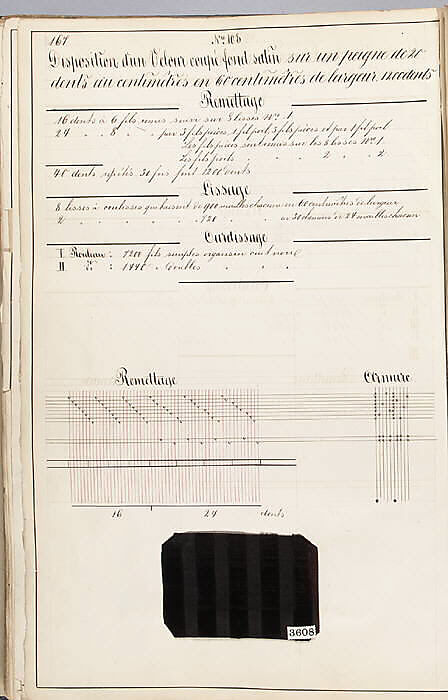 167
No 103
Disposition d'un Velours coupé fond satin sur un peigne de 20
dents au centimètres en 60 centimètres de largeur
Remettage
16 dents à 6 fils suivi sur 8 lisses No 1
24 " 8 " " par 3 fils pièces, 1 fil poil, 3 fils pièces et par 1 fil poil
Les fils pièces sur les 8 lisses No 1
Les fils poils " " 2 " " 2
40 dents répétés 30 fois font 1200 dents
Lissage
8 lisses à coulisses de 900 mailles chacune en 60 centimètres de largeur
2 " " 720 " ou 30 de 24 mailles chacun
Ourdissage
I Rouleau : 7200 fils simples organsin cuit noir
II d° : 1440 " doubles " " "
Remettage
Armure
16 24 dents
3608